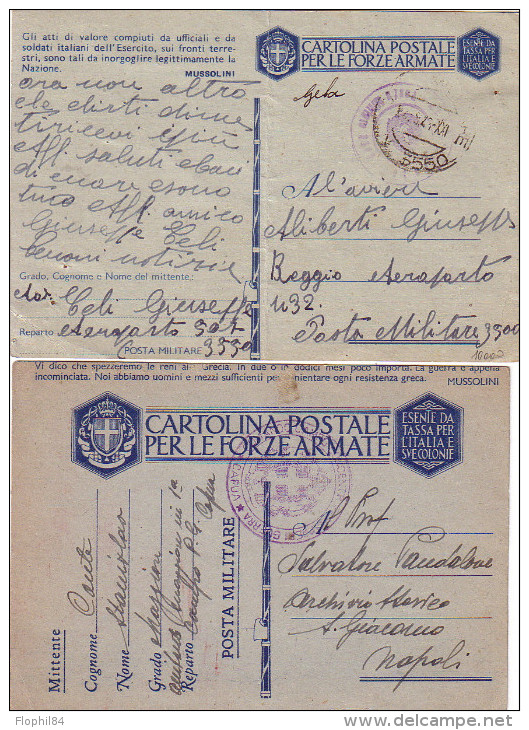 Gli atti di valore compiuti da ufficiali e da
soldati italiani dell'Esercito, sui fronti terre-
stri, sono tali da inorgoglire legittimamente la
Nazione.
MUSSOLINI
ora non altro
che dirti
ricevi i più
Aff. saluti e baci
di cuore e sono
tuo Aff. amico
Giuseppe Celi
buoni notizie
Grado, Cognome e Nome del mittente:
Av. Celi Giuseppe
Reparto Aeroporto 507
(POSTA MILITARE 3550
CARTOLINA POSTALE
PER LE FORZE ARMATE
ESENTE DA
TASSA PER
L'ITALIA E
SVE COLONIE
3550
A l'aviere
Aliberti Giuseppe
Reggio Aeroporto
432.
Posta Militare 3300
10000
Vi dico che spezzeremo le reni alla Grecia. In due o in dodici mesi poco importa. La guerra è appena
incominciata. Noi abbiamo uomini e mezzi sufficienti per annientare ogni resistenza greca.
MUSSOLINI
CARTOLINA POSTALE
PER LE FORZE ARMATE
ESENTE DA
TASSA PER
L'ITALIA E
SVE COLONIE
CAPUA
Mittente
Cognome Conte
Nome Stanislao
Grado
Reparto Campo P. G. Capua
POSTA MILITARE
Al Prof
Salvatore Pandalone
Archivio Storico
S. Giacomo
Napoli
Flophil84
delcampe.net